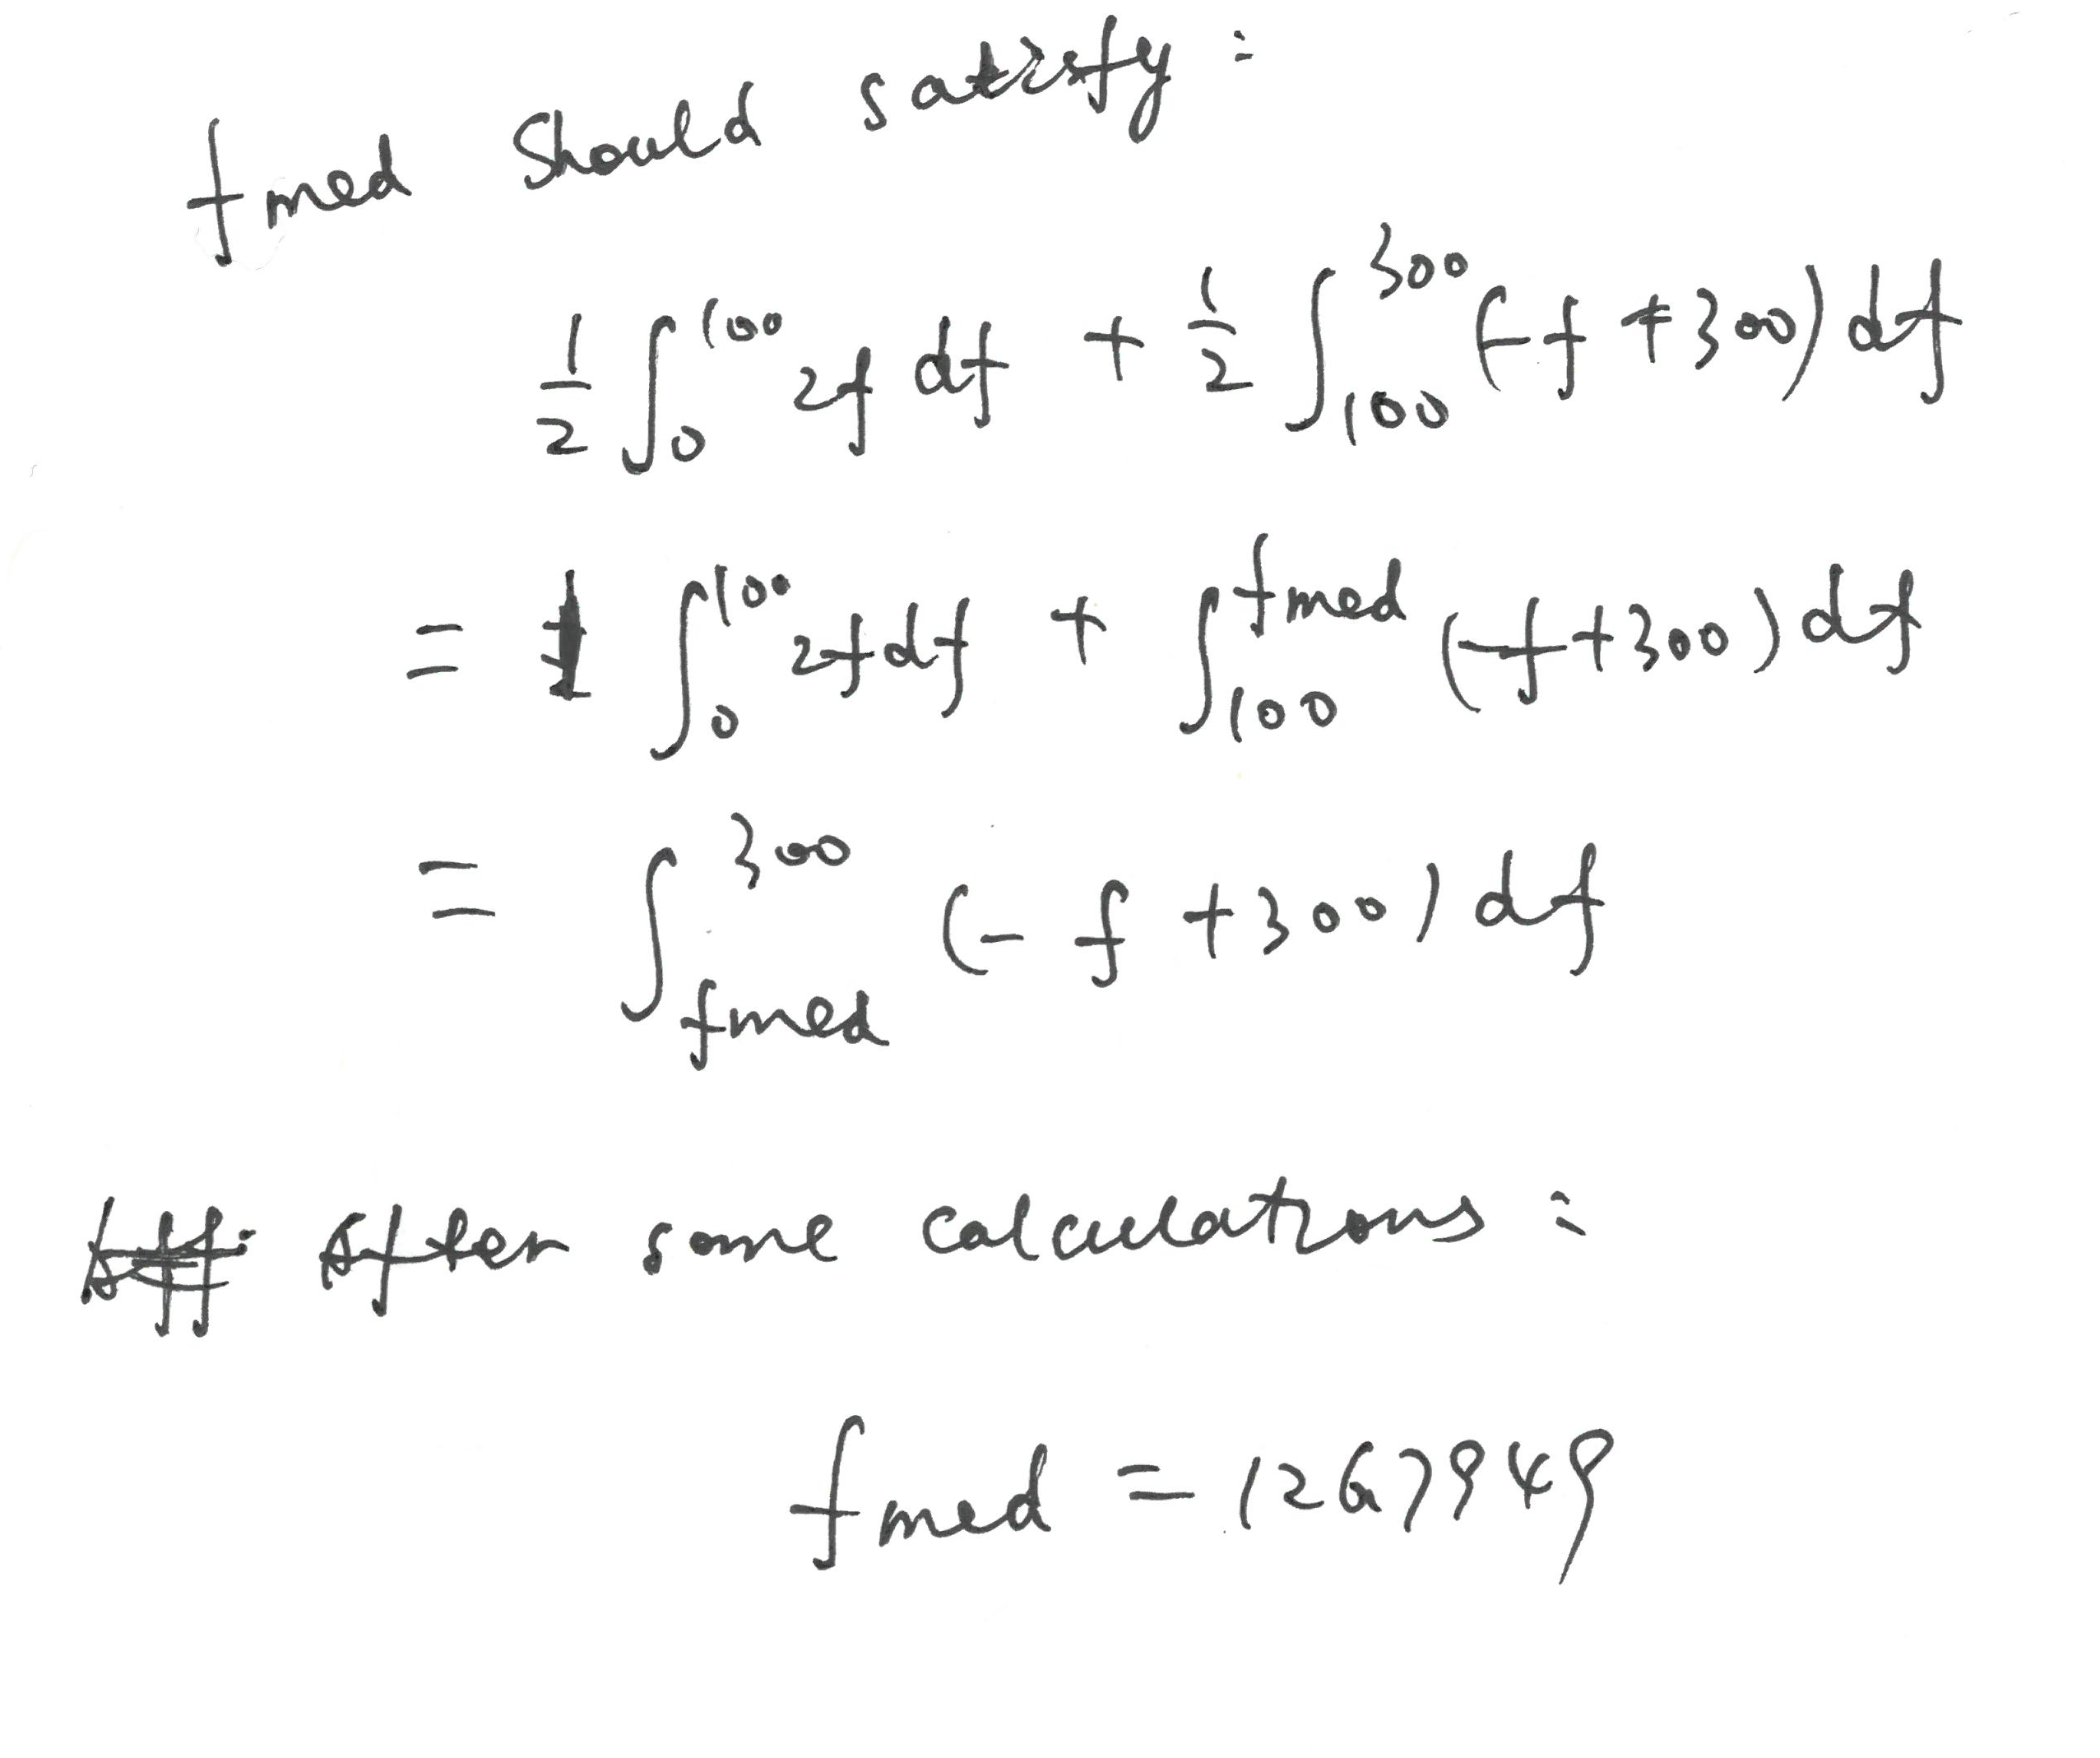 fmed should satisfy:
1/2 ∫_0^100 2f df + 1/2 ∫_100^300 (-f +300) df
= ∫_0^100 2f df + ∫_100^fmed (-f +300) df
= ∫_fmed^300 (-f +300) df
After some calculations:
fmed = 1267949